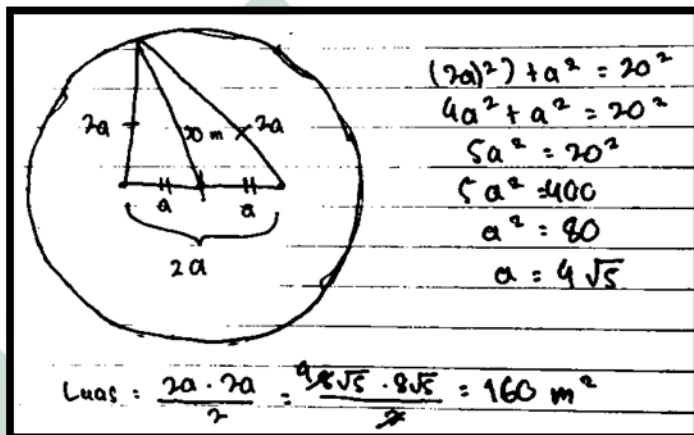 2a
20 m
2a
a
a
2a
(2a)²) + a² = 20²
4a² + a² = 20²
5a² = 20²
5a² = 400
a² = 80
a = 4√5
Luas = 2a · 2a / 2 = 4 8√5 · 8√5 / 2 = 160 m²